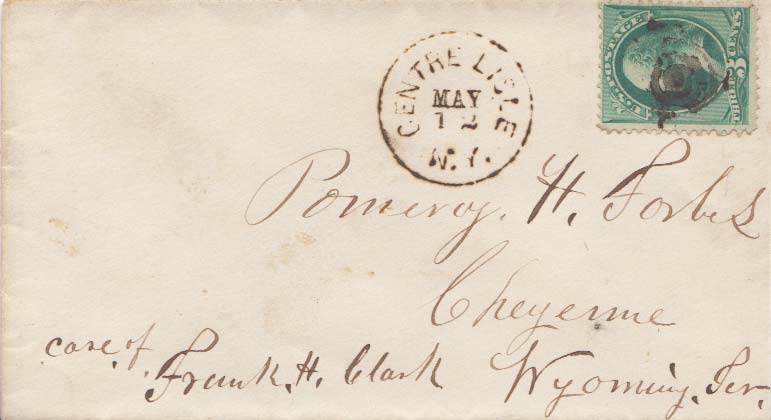 CENTRE LISLE
MAY
12
N.Y.
U.S. POSTAGE
Pomeroy. H. Forbes
Cheyenne
care of
Frank. H. Clark Wyoming. Ter.